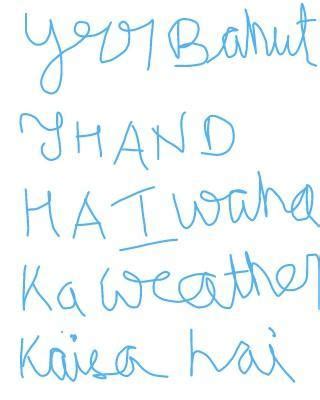 yeer Bahut
THAND
HAI waha
Ka weather
Kaisa hai